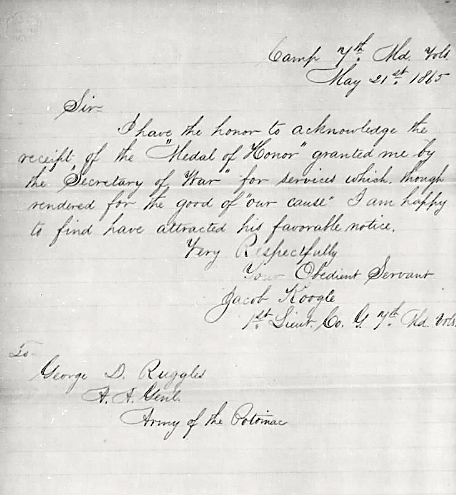 Camp 7th Md. Vols
May 21st 1865
Sir
I have the honor to acknowledge the
receipt of the "Medal of Honor" granted me by
the "Secretary of War" for services which, though
rendered for the good of "our cause" I am happy
to find have attracted his favorable notice.
Very Respectfully
Your Obedient Servant
Jacob Koogle
1st Lieut. Co. G. 7th Md. Vols.
To
George D. Ruggles
A. A. Genl.
Army of the Potomac